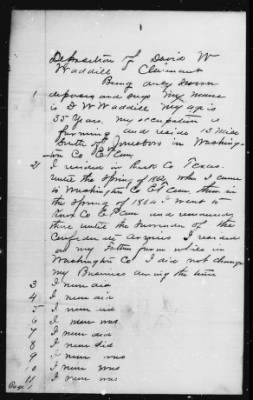 Deposition of David W
Waddill Claimant
Being duly sworn
1 deposes and says My name
is D W Waddill My age is
35 Years. My occupation is
farming and reside 13 Miles
South of Jonesboro in Washing-
ton Co E Tenn
2) I resided in Co Texas
until the Spring of 1862 when I came
to Washington Co E Tenn, then in
the Spring of 1864 I went to
Knox Co E Tenn and remained
there until the Surrender of the
Confederate Armies I resided
on my Fathers farm while in
Washington Co I did not change
my Business during the time
3 I never did
4 I never did
5 I never did
6 I never was
7 I never did
8 I never did
9 I never was
10 I never was
11 I never was
Page 1